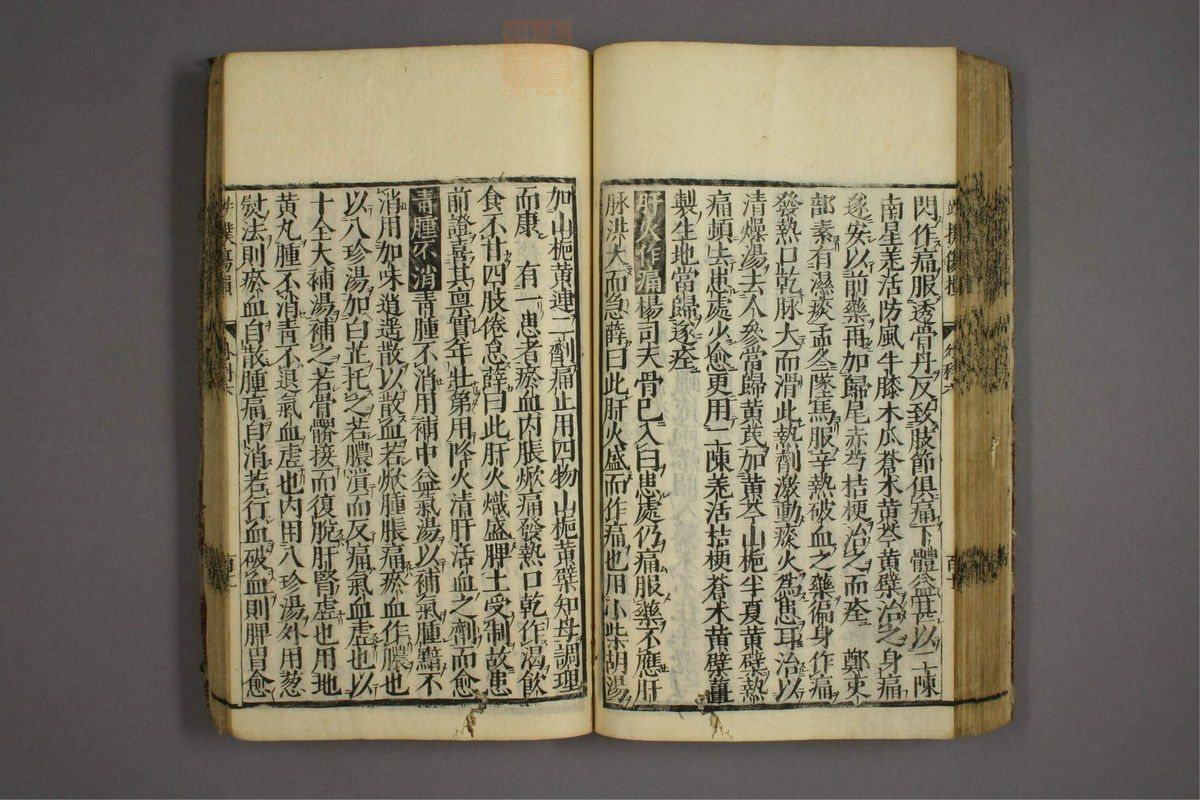 閃作痛服透骨丹反致肢節俱痛下體益甚以二陳
南星羌活防風牛膝木瓜蒼朮黃芩黃蘗治之身痛
遂安以前藥再加歸尾赤芍桔梗治之而痊 鄭吏
部素有濕痰孟冬墜馬服辛熱破血之藥徧身作痛
發熱口乾脉大而滑此熱劑激動痰火為患耳治以
清燥湯去人參當歸黃芪加黃芩山梔半夏黃蘗熱
痛頓去患處少愈更用二陳羌活桔梗蒼朮黃蘗薑
製生地當歸遂痊
肝火作痛楊司天骨已入臼患處仍痛服藥不應肝
脉洪大而急薛曰此肝火盛而作痛也用小柴胡湯
加山梔黃連二劑痛止用四物山梔黃蘗知母調理
而康 有一患者瘀血內脹焮痛發熱口乾作渴飲
食不甘四肢倦怠薛曰此肝火熾盛脾土受制故患
前證喜其禀實年壯第用降火清肝活血之劑而愈
青腫不消青腫不消用補中益氣湯以補氣腫黯不
消用加味逍遙散以散血若焮腫脹痛瘀血作膿也
以八珍湯加白芷托之若膿潰而反痛氣血虛也以
十全大補湯補之若骨髎接而復脫肝腎虛也用地
黃丸腫不消青不退氣血虛也內用八珍湯外用葱
熨法則瘀血自散腫痛自消若行血破血則脾胃愈